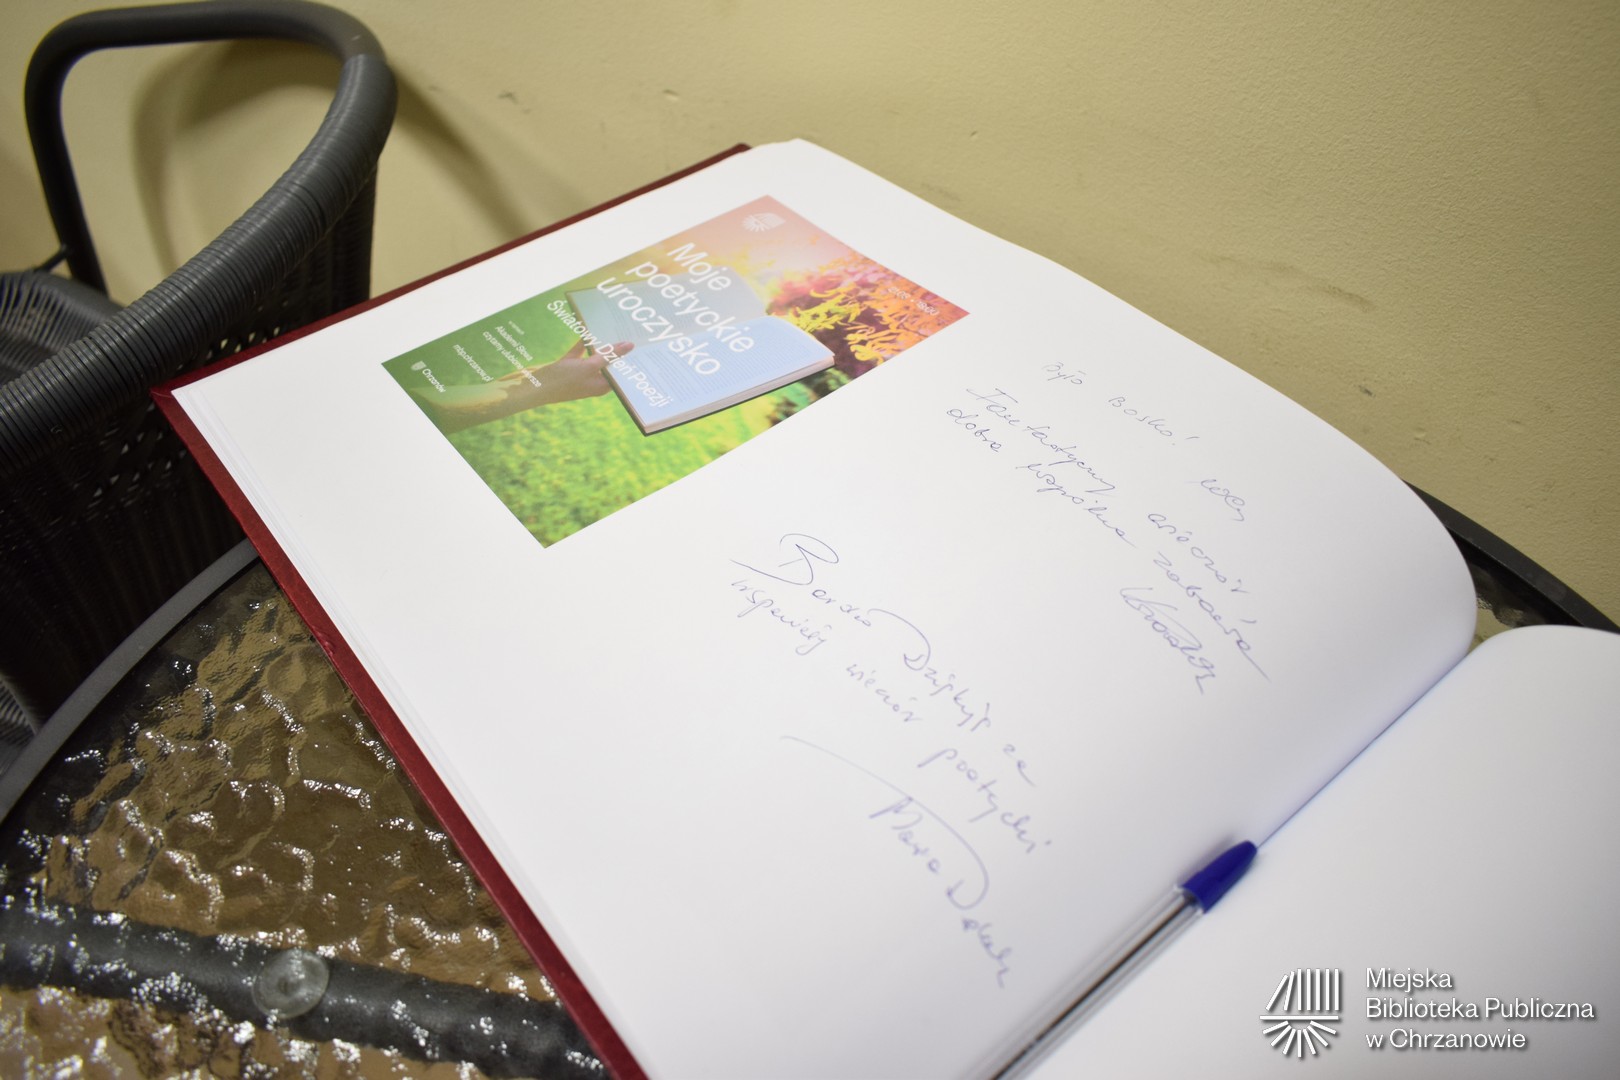 Moje
poetyckie
uroczysko
Światowy Dzień Poezji
Akademii Słowa
czytamy ulubione wiersze
mbp.chrzanow.pl
Chrzanów
Było Bosko!
Fantastyczny wieczór
dobra wspólna zabawa
Bardzo Dziękuję za
wspaniały wieczór poetycki
Miejska
Biblioteka Publiczna
w Chrzanowie